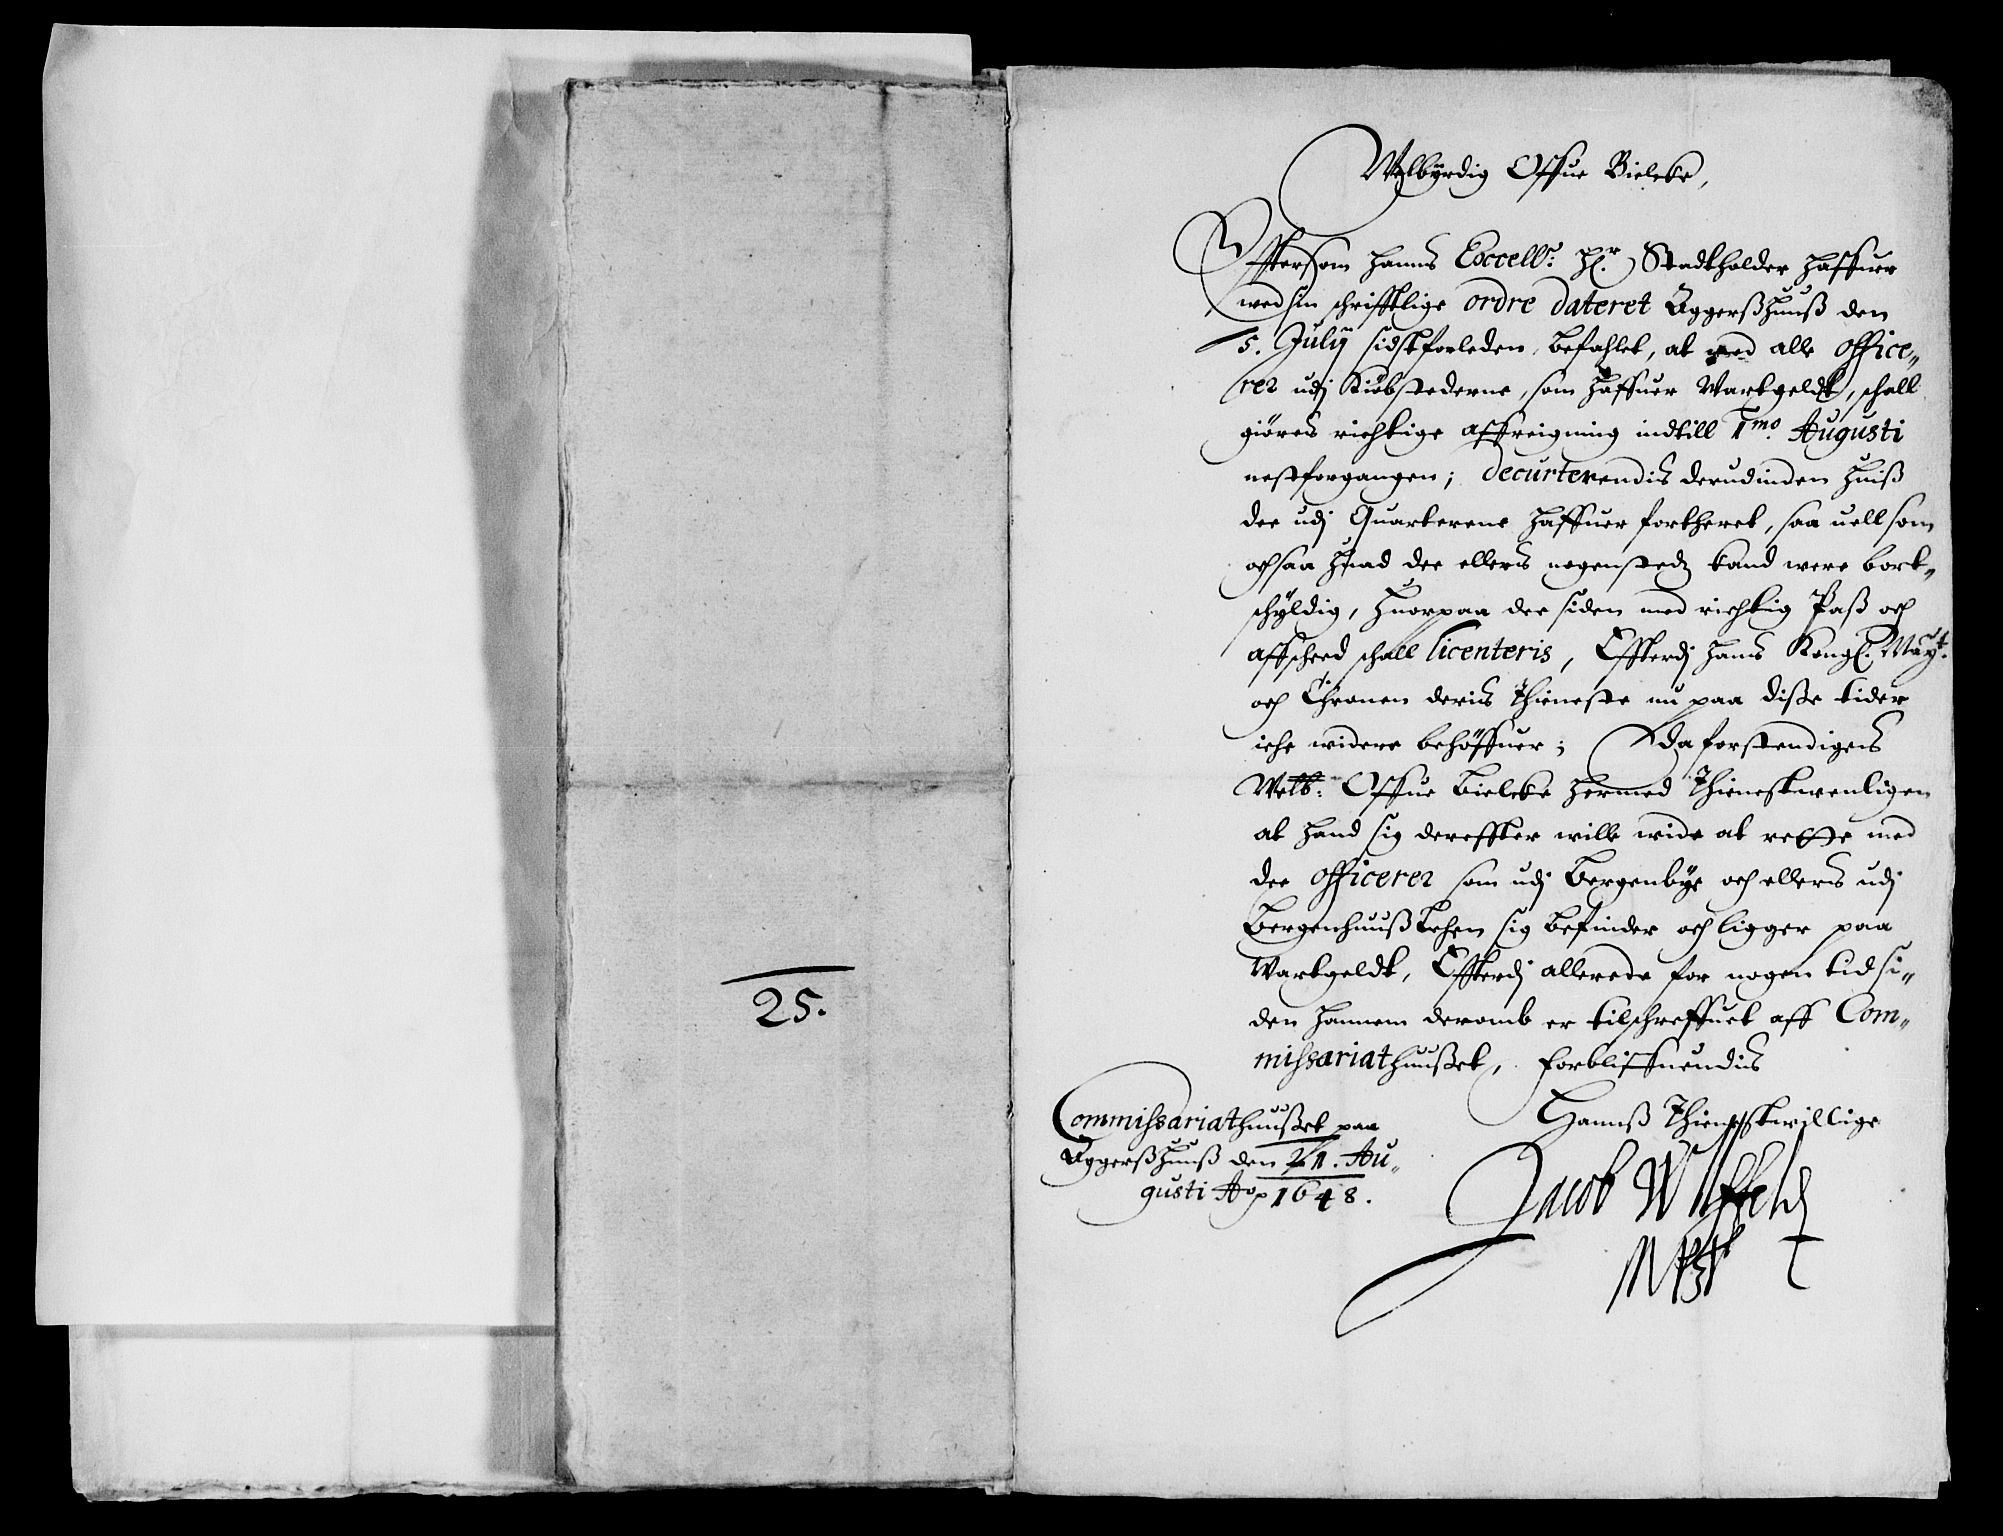 25.
Welbyrdig Offue Bielcke,
Efftersom hanns Excell: hr. Stadtholder haffuer
wed sin schrifftlige ordre dateret Aggerßhuuß den
5. Julij sidstforleden, befahlet, at med alle office„
rer udj Kiøbstederne, som haffuer Wartgeldt, schall
giøres richtige affreigning indtill 1mo. Augusti
nestforgangen; decurterendis derudinden huiß
dee udj Quarterene haffuer fortheret, saa uell som
ochsaa huad dee ellers nogensteds kand were bort„
schyldig, huorpaa dee siden med richtig Paß och
affscheed schall licenteris, Effterdj hans Kongl. Mayt.
och Chronen deris Thieneste nu paa diße tider
iche widere behøffuer; Da forstendigens
Welb: Offue Bielcke hermed Thienestwenligen
at hand sig dereffter wille wide at rette med
dee officerer som udj Bergenbye och ellers udj
Bergenhuuß Lehen sig befinder och ligger paa
Wartgeldt, Effterdj allerede for nogen tid si„
den hannem deromb er tilschreffuet aff Com„
missariathuußet, forbliffuendis
Hannß Thienestwillige
Commissariathuußet paa
Aggerßhuuß den 21. Au„
gusti Ao 1648.
Jacob Wlffeld